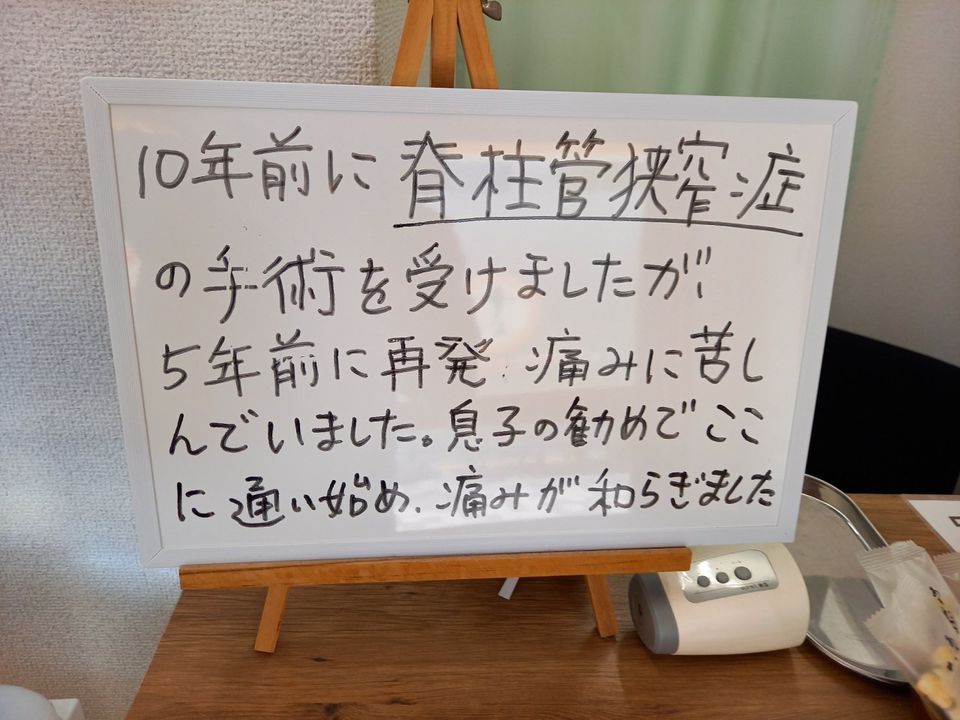 10年前に脊柱管狭窄症
の手術を受けましたが、
5年前に再発、痛みに苦し
んでいました。息子の勧めでここ
に通い始め、痛みが和らぎました